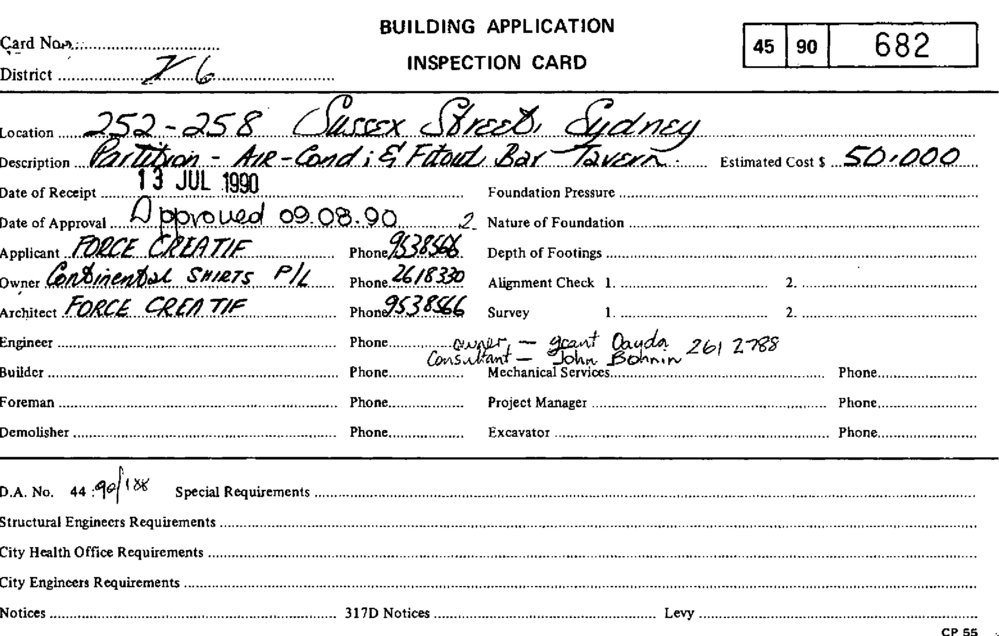 BUILDING APPLICATION
INSPECTION CARD
Card No.
45 90 682
District Z6
Location 252-258 Sussex Street, Sydney
Description Partition - AIR-Cond; & Fitout Bar Tavern. Estimated Cost $ 50,000
Date of Receipt 13 JUL 1990 Foundation Pressure
Date of Approval Approved 09.08.90 2 Nature of Foundation
Applicant FORCE CREATIF Phone 9538566 Depth of Footings
Owner Continental SHIRTS P/L Phone 2618330 Alignment Check 1. 2.
Architect FORCE CREATIF Phone 9538566 Survey 1. 2.
Engineer Phone owner, - grant Dayda 261 2788
Consultant - John Bohnin
Builder Phone Mechanical Services Phone
Foreman Phone Project Manager Phone
Demolisher Phone Excavator Phone
D.A. No. 44:90/188 Special Requirements
Structural Engineers Requirements
City Health Office Requirements
City Engineers Requirements
Notices 317D Notices Levy
CP 55